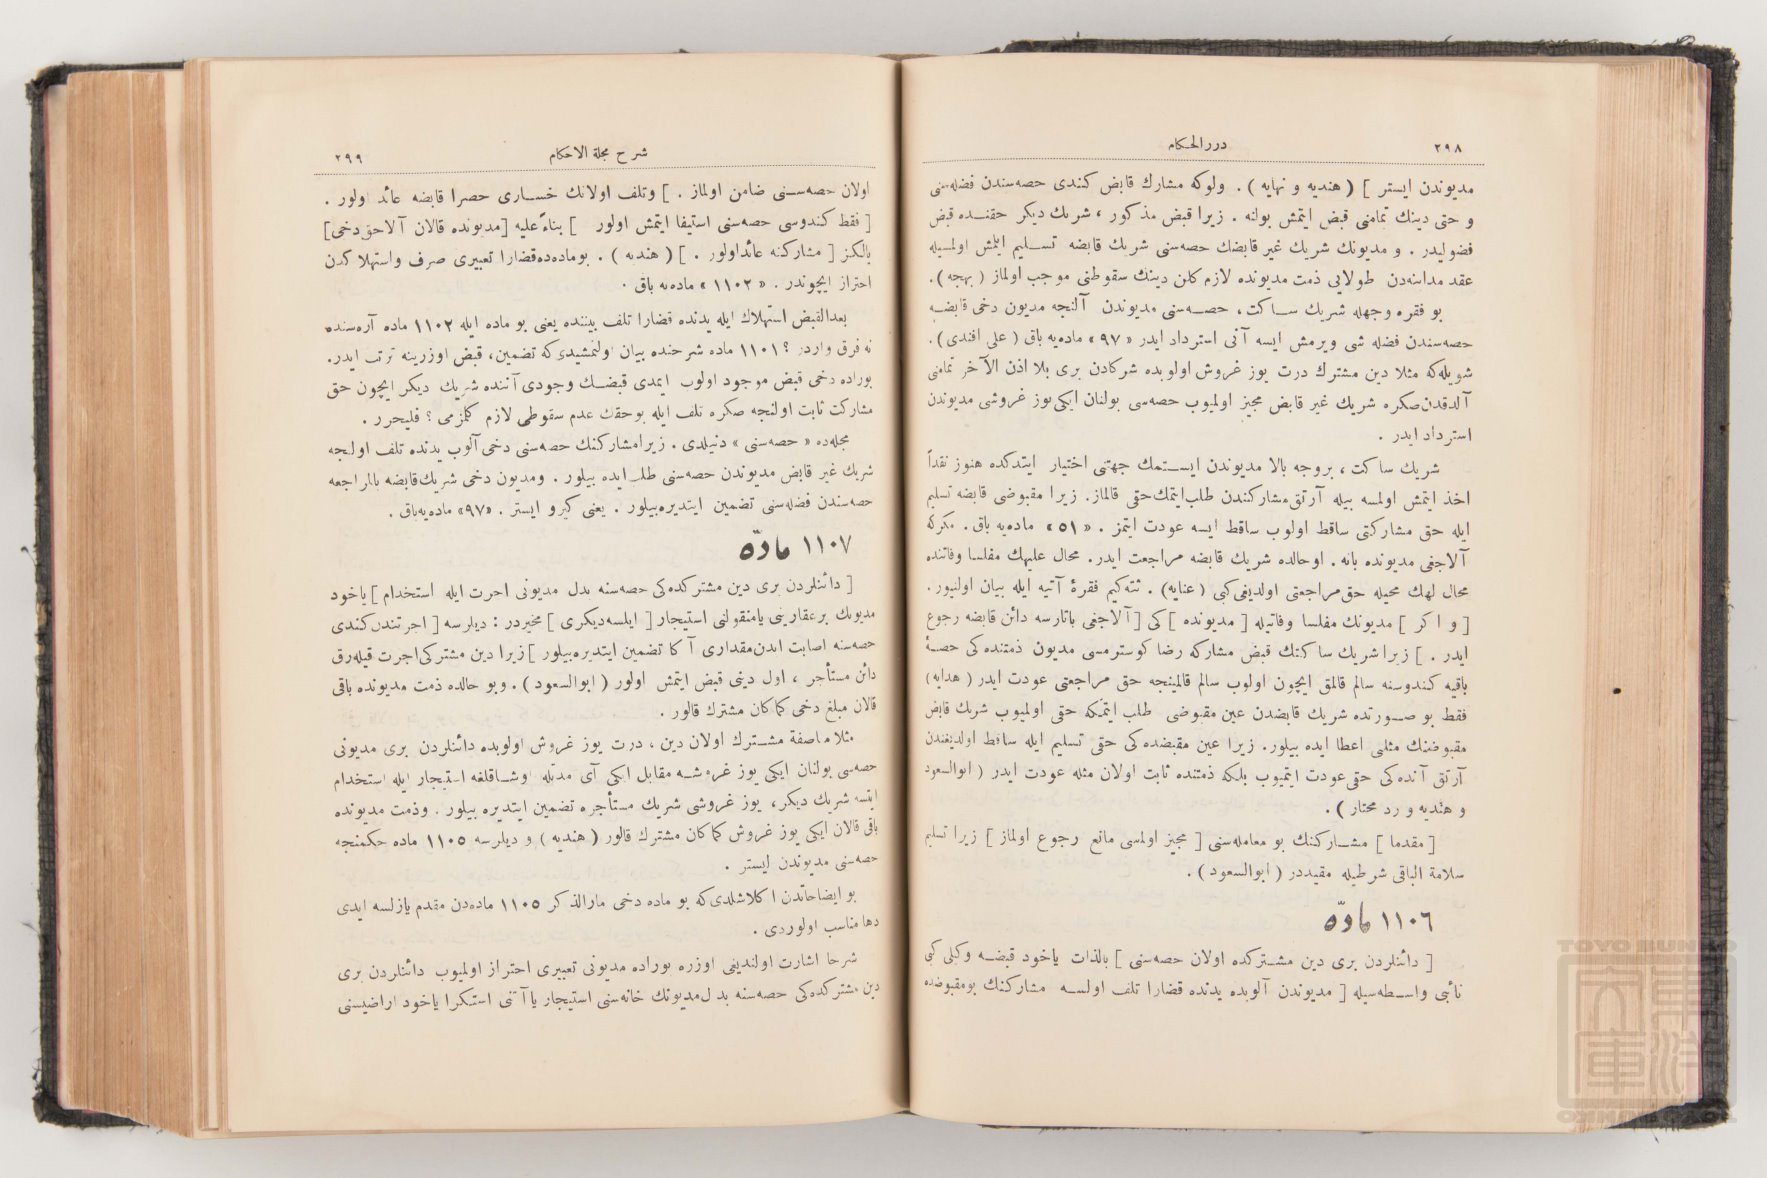 ٢٩٨
دررالحكام
مديوندن ايستر ] ( هنديه و نهايه ) . ولوكه مشارك قابض كندى حصه‌سندن فضله‌سنى
و حتى دينك تمامنى قبض ايتمش بولنه . زيرا قبض مذكور ، شريك ديكر حقنده قبض
فضوليدر . و مديونك شريك غير قابضك حصه‌سنى شريك قابضه تسليم ايلمش اولمسيله
عقد مداينه‌دن طولايى ذمت مديونده لازم كلن دينك سقوطنى موجب اولماز ( بهجه ) .
بو فقره وجهله شريك ساكت ، حصه‌سنى مديوندن آلنجه مديون دخى قابضه
حصه‌سندن فضله شى ويرمش ايسه آنى استرداد ايدر « ٩٧ » ماده‌يه باق ( على افندى ) .
شويله‌كه مثلا دين مشترك درت يوز غروش اولوبده شركادن برى بلا اذن الآخر تمامنى
آلدقدن‌صكره شريك غير قابض مجيز اولميوب حصه‌سى بولنان ايكى‌يوز غروشى مديوندن
استرداد ايدر .
شريك ساكت ، بروجه بالا مديوندن ايستمك جهتنى اختيار ايتدكده هنوز نقداً
اخذ ايتمش اولمسه بيله آرتق‌مشاركندن طلب‌ايتمك‌حقى قالماز . زيرا مقبوضى قابضه تسليم
ايله حق مشاركتى ساقط اولوب ساقط ايسه عودت ايتمز . « ٥١ » ماده‌يه باق . مكركه
آلاجغى مديونده باته . اوحالده شريك قابضه مراجعت ايدر . محال عليهك مفلسا وفاتنده
محال لهك محيله حق‌مراجعتى اولديغى‌كبى ( عنايه ) . نته‌كيم فقرهٔ آتيه ايله بيان اولنيور .
[ و اكر ] مديونك مفلسا وفاتيله [ مديونده ] كى [ آلاجغى باتارسه دائن قابضه رجوع
ايدر . ] زيرا شريك ساكتك قبض مشاركه رضا كوسترمسى مديون ذمتنده‌كى حصهٔ
باقيه كندوسنه سالم قالمق ايچون اولوب سالم قالمينجه حق مراجعتى عودت ايدر ( هدايه )
فقط بو صورتده شريك قابضدن عين مقبوضى طلب ايتمكه حقى اولميوب شريك قابض
مقبوضنك مثلنى اعطا ايده بيلور . زيرا عين مقبضده‌كى حقى تسليم ايله ساقط اولديغندن
آرتق آنده‌كى حقى عودت ايتميوب بلكه ذمتنده ثابت اولان مثله عودت ايدر ( ابوالسعود
و هنديه و رد محتار ) .
[ مقدما ] مشاركنك بو معامله‌سنى [ مجيز اولمسى مانع رجوع اولماز ] زيرا تسليم
سلامة الباقى شرطيله مقيددر ( ابوالسعود ) .
١١٠٦ ماده
[ دائنلردن برى دين مشتركده اولان حصه‌سنى ] بالذات ياخود قبضه وكلى كبى
نائبى واسطه‌سيله [ مديوندن آلوبده يدنده قضارا تلف اولسه مشاركنك بومقبوضده
شرح مجلة الاحكام
٢٩٩
اولان حصه‌سنى ضامن اولماز . ] وتلف اولانك خسارى حصرا قابضه عائد اولور .
[ فقط كندوسى حصه‌سنى استيفا ايتمش اولور ] بناءً عليه [ مديونده قالان آلاجق دخى ]
يالكز [ مشاركنه عائداولور . ] ( هنديه ) . بوماده‌ده‌قضارا تعبيرى صرف واستهلاكدن
احتراز ايچوندر . « ١١٠٢ » ماده‌يه باق .
بعدالقبض استهلاك ايله يدنده قضارا تلف بيننده يعنى بو ماده ايله ١١٠٢ ماده آره‌سنده
نه فرق واردر ؟ ١١٠١ ماده شرحنده بيان اولنمشيدى‌كه تضمين ، قبض اوزرينه ترتب ايدر .
بوراده دخى قبض موجود اولوب ايمدى قبضك وجودى آننده شريك ديكر ايچون حق
مشاركت ثابت اولنجه صكره تلف ايله بوحقك عدم سقوطى لازم كلمزمى ؟ فليحرر .
مجله‌ده « حصه‌سنى » دنيلدى . زيرامشاركنك حصه‌سنى دخى آلوب يدنده تلف اولنجه
شريك غير قابض مديوندن حصه‌سنى طلب ايده بيلور . ومديون دخى شريك‌قابضه بالمراجعه
حصه‌سندن فضله‌سنى تضمين ايتديره‌بيلور . يعنى كيرو ايستر . «٩٧» ماده‌يه‌باق .
١١٠٧ ماده
[ دائنلردن برى دين مشتركده‌كى حصه‌سنه بدل مديونى اجرت ايله استخدام ] ياخود
مديونك برعقارينى يامنقولنى استيجار [ ايلسه‌ديكرى ] مخيردر : ديلرسه [ اجرتندن‌كندى
حصه‌سنه اصابت ايدن‌مقدارى آكا تضمين ايتديره‌بيلور ] زيرا دين مشتركى‌اجرت قيله‌رق
دائن مستأجر ، اول دينى قبض ايتمش اولور ( ابوالسعود ) . وبو حالده ذمت مديونده باقى
قالان مبلغ دخى كماكان مشترك قالور .
مثلا مناصفة مشترك اولان دين ، درت يوز غروش اولوبده دائنلردن برى مديونى
حصه‌سى بولنان ايكى يوز غروشه مقابل ايكى آى مدتله اوشاقلغه استيجار ايله استخدام
ايتسه شريك ديكر ، يوز غروشى شريك مستأجره تضمين ايتديره بيلور . وذمت مديونده
باقى قالان ايكى يوز غروش كماكان مشترك قالور ( هنديه ) و ديلرسه ١١٠٥ ماده حكمنجه
حصه‌سنى مديوندن ايستر .
بو ايضاحاتدن اكلاشلدى‌كه بو ماده دخى مارالذكر ١١٠٥ ماده‌دن مقدم يازلسه ايدى
دها مناسب اولوردى .
شرحا اشارت اولنديغى اوزره بوراده مديونى تعبيرى احتراز اولميوب دائنلردن برى
دين مشتركده‌كى حصه‌سنه بدل‌مديونك خانه‌سنى استيجار ياآتنى استكرا ياخود اراضيسنى
TOYO BUNKO